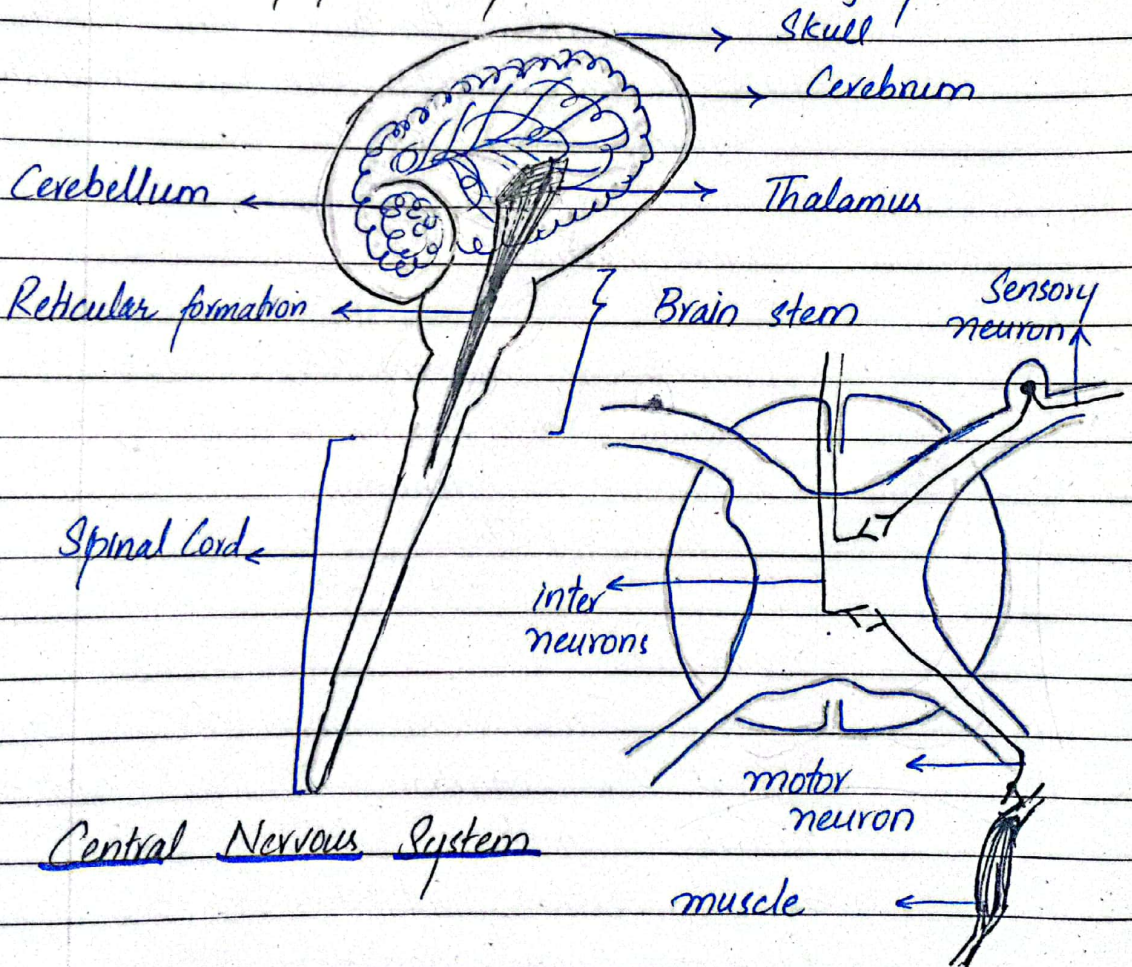 Skull
Cerebrum
Cerebellum
Thalamus
Reticular formation
Brain stem
Sensory
neuron
Spinal Cord
inter
neurons
motor
neuron
Central Nervous System
muscle